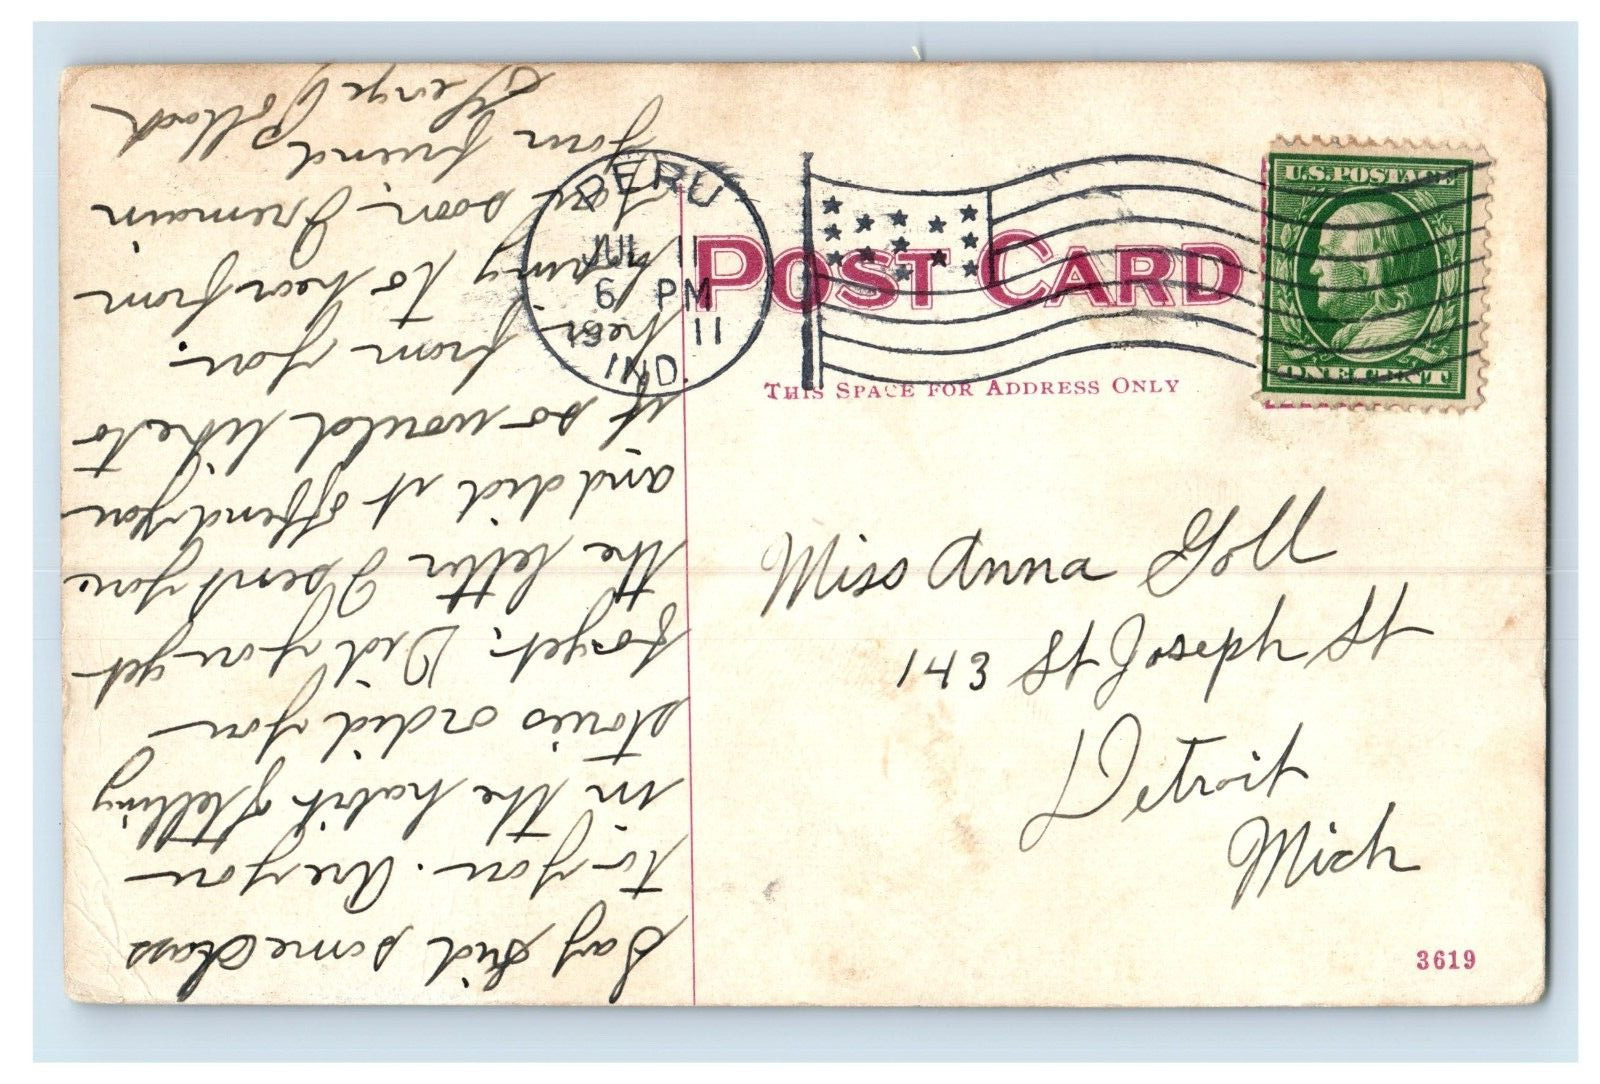 POST CARD
THIS SPACE FOR ADDRESS ONLY
PERU
JUL 11
6 PM
1911
IND.
U.S. POSTAGE
ONE CENT
Miss Anna Goll
143 St Joseph St
Detroit
Mich
3619
Say Kid some Class
to you. Are you
in the habit of telling
stories or did you
forget. Did you get
the letter I sent you
and did it offend you
if so would like to
hear from you.
to hear from
you soon I remain
your friend
George Pollock